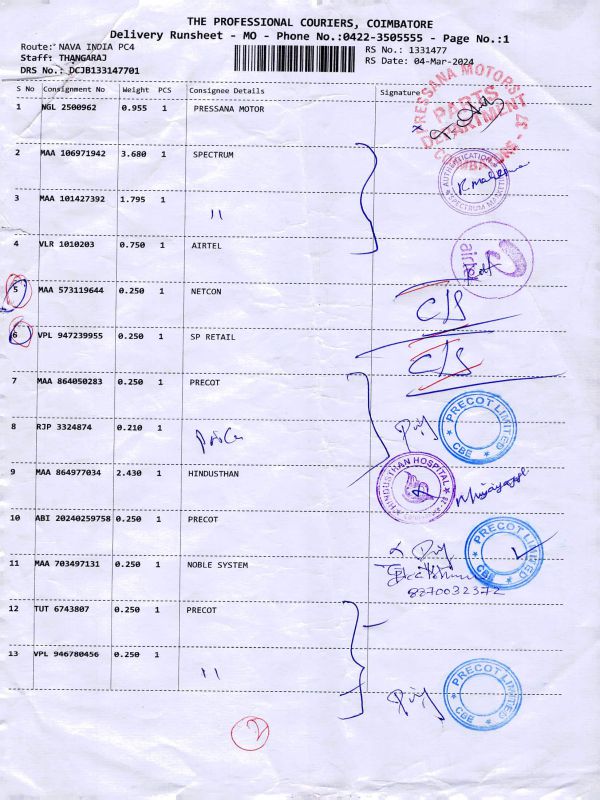 THE PROFESSIONAL COURIERS, COIMBATORE
Delivery Runsheet - MO - Phone No.:0422-3505555 - Page No.:1
Route: NAVA INDIA PC4
Staff: THANGARAJ
DRS No.: DCJB133147701
RS No.: 1331477
RS Date: 04-Mar-2024
S No Consignment No Weight PCS Consignee Details Signature
1 NGL 2500962 0.955 1 PRESSANA MOTOR
PRESSANA MOTORS
PARTS DEPARTMENT
2 MAA 106971942 3.680 1 SPECTRUM
AUTHENTICATION
3 MAA 101427392 1.795 1 "
4 VLR 1010203 0.750 1 AIRTEL
airtel
5 MAA 573119644 0.250 1 NETCON
C/S
6 VPL 947239955 0.250 1 SP RETAIL
C/S
7 MAA 864050283 0.250 1 PRECOT
PRECOT LIMITED
CBE
8 RJP 3324874 0.210 1
9 MAA 864977034 2.430 1 HINDUSTHAN
HINDUSTHAN HOSPITAL
10 ABI 20240259758 0.250 1 PRECOT
PRECOT LIMITED
CBE
11 MAA 703497131 0.250 1 NOBLE SYSTEM
8270032372
12 TUT 6743807 0.250 1 PRECOT
13 VPL 946780456 0.250 1 "
PRECOT LIMITED
CBE
2